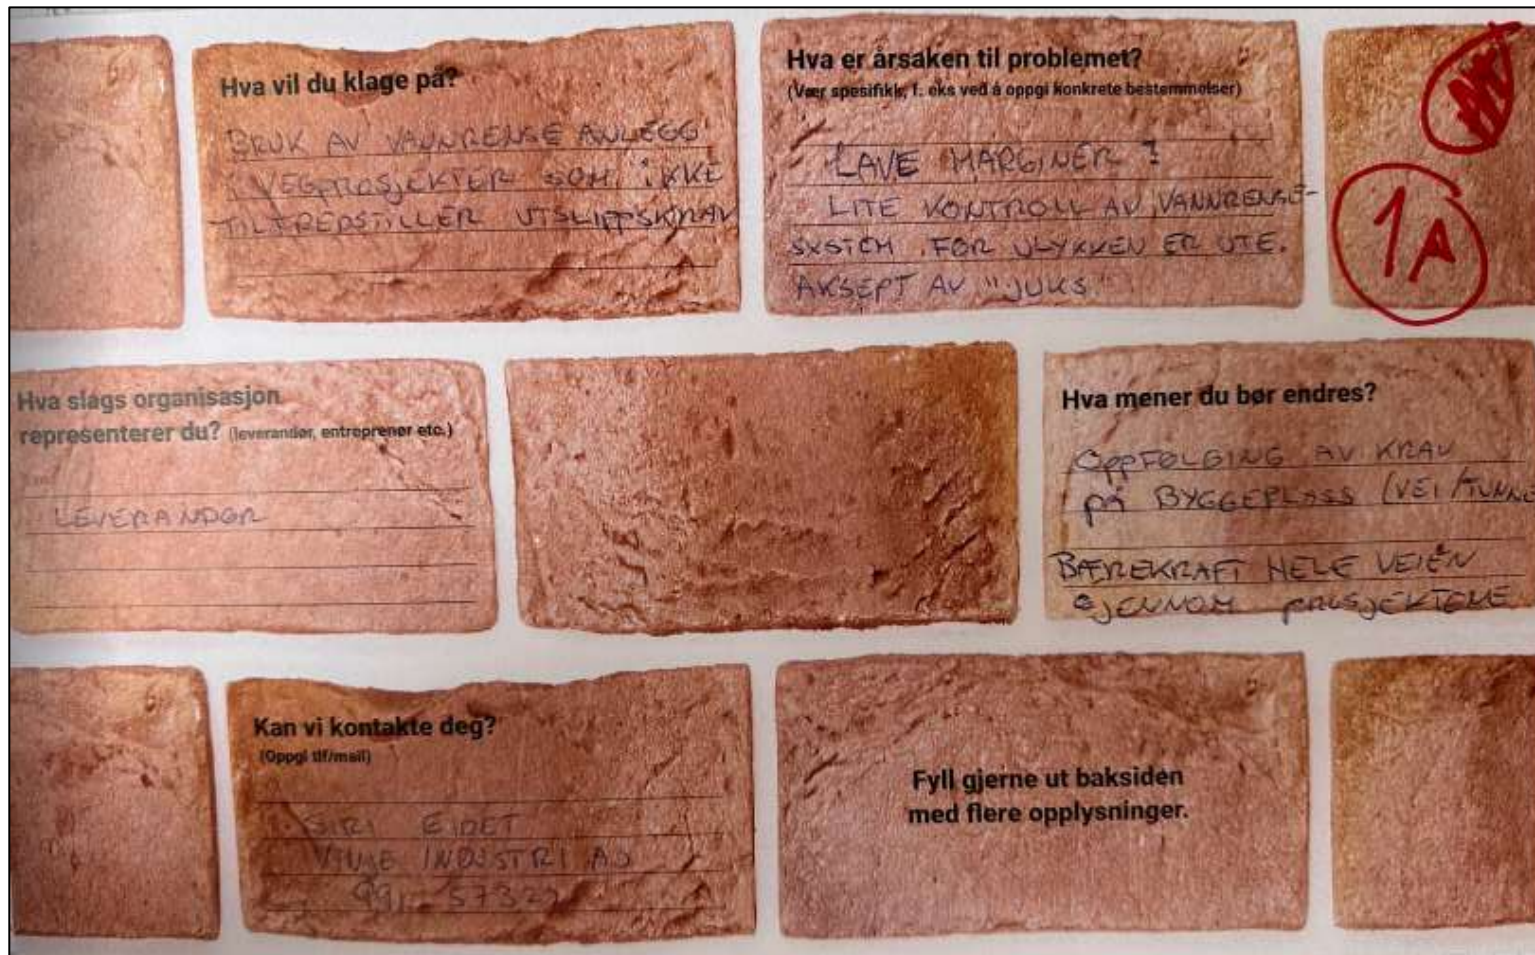 Hva vil du klage på?
BRUK AV VANNRENSE ANLEGG
i VEGPROSJEKTER SOM iKKE
TILFREDSTILLER UTSLIPPSKRAV
Hva er årsaken til problemet?
(Vær spesifikk, f. eks ved å oppgi konkrete bestemmelser)
LAVE MARGINER ?
LITE KONTROLL AV VANNRENSE-
SYSTEM FØR ULYKKEN ER UTE.
AKSEPT AV "JUKS"
1A
Hva slags organisasjon
representerer du? (leverandør, entreprenør etc.)
LEVERANDØR
Hva mener du bør endres?
OppFØLGING AV KRAV
på BYGGEPLASS (VEI/TUNNE
BÆREKRAFT HELE VEIEN
GJENNOM prosJEKTENE
Kan vi kontakte deg?
(Oppgi tlf/mail)
SIRI EIDET
VINJE INDUSTRI AS
Fyll gjerne ut baksiden
med flere opplysninger.